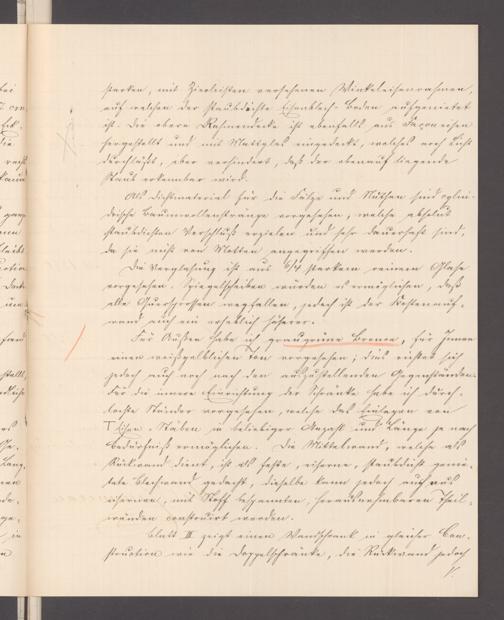 starken, mit Zierleisten versehenen Winkeleisenrahmen,
auf welchen der staubdichte Eisenblech-Boden aufgenietet
ist. Die obere Rahmendecke ist ebenfalls aus Façoneisen
hergestellt und mit Mattglas eingedeckt, welches noch Licht
durchläßt, aber verhindert, daß der obenauf liegende
Staub erkennbar wird.
Als Dichtmaterial für die Falze und Nuthen sind cylin-
drische Baumwollenstränge vorgesehen, welche absolut
staubdichten Verschluß erzielen und sehr dauerhaft sind,
da sie nicht von Motten angegriffen werden.
Die Verglasung ist aus 6/4 starkem reinem Glase
vorgesehen. Spiegelscheiben würden es ermöglichen, daß
alle Quersprossen wegfallen, jedoch ist der Kostenauf-
wand auch ein erheblich höherer.
Für Außen habe ich graugrüne Bronce, für Innen
einen weißgelblichen Ton vorgesehen; dies richtet sich
jedoch auch noch nach den aufzustellenden Gegenständen.
Für die innere Einrichtung der Schränke habe ich durch-
lochte Ständer vorgesehen, welche das Einlegen von
T Eisen-Stäben in beliebiger Anzahl und Länge je nach
Bedürfniß ermöglichen. Die Mittelwand, welche als
Rückwand dient, ist als feste, eiserne, staubdicht genie-
tete Blechwand gedacht, dieselbe kann jedoch auch aus
eisernen, mit Stoff bespannten, herausnehmbaren Theil-
wänden construirt werden.
Blatt III zeigt einen Wandschrank in gleicher Con-
struction wie die Doppelschränke, die Rückwand jedoch